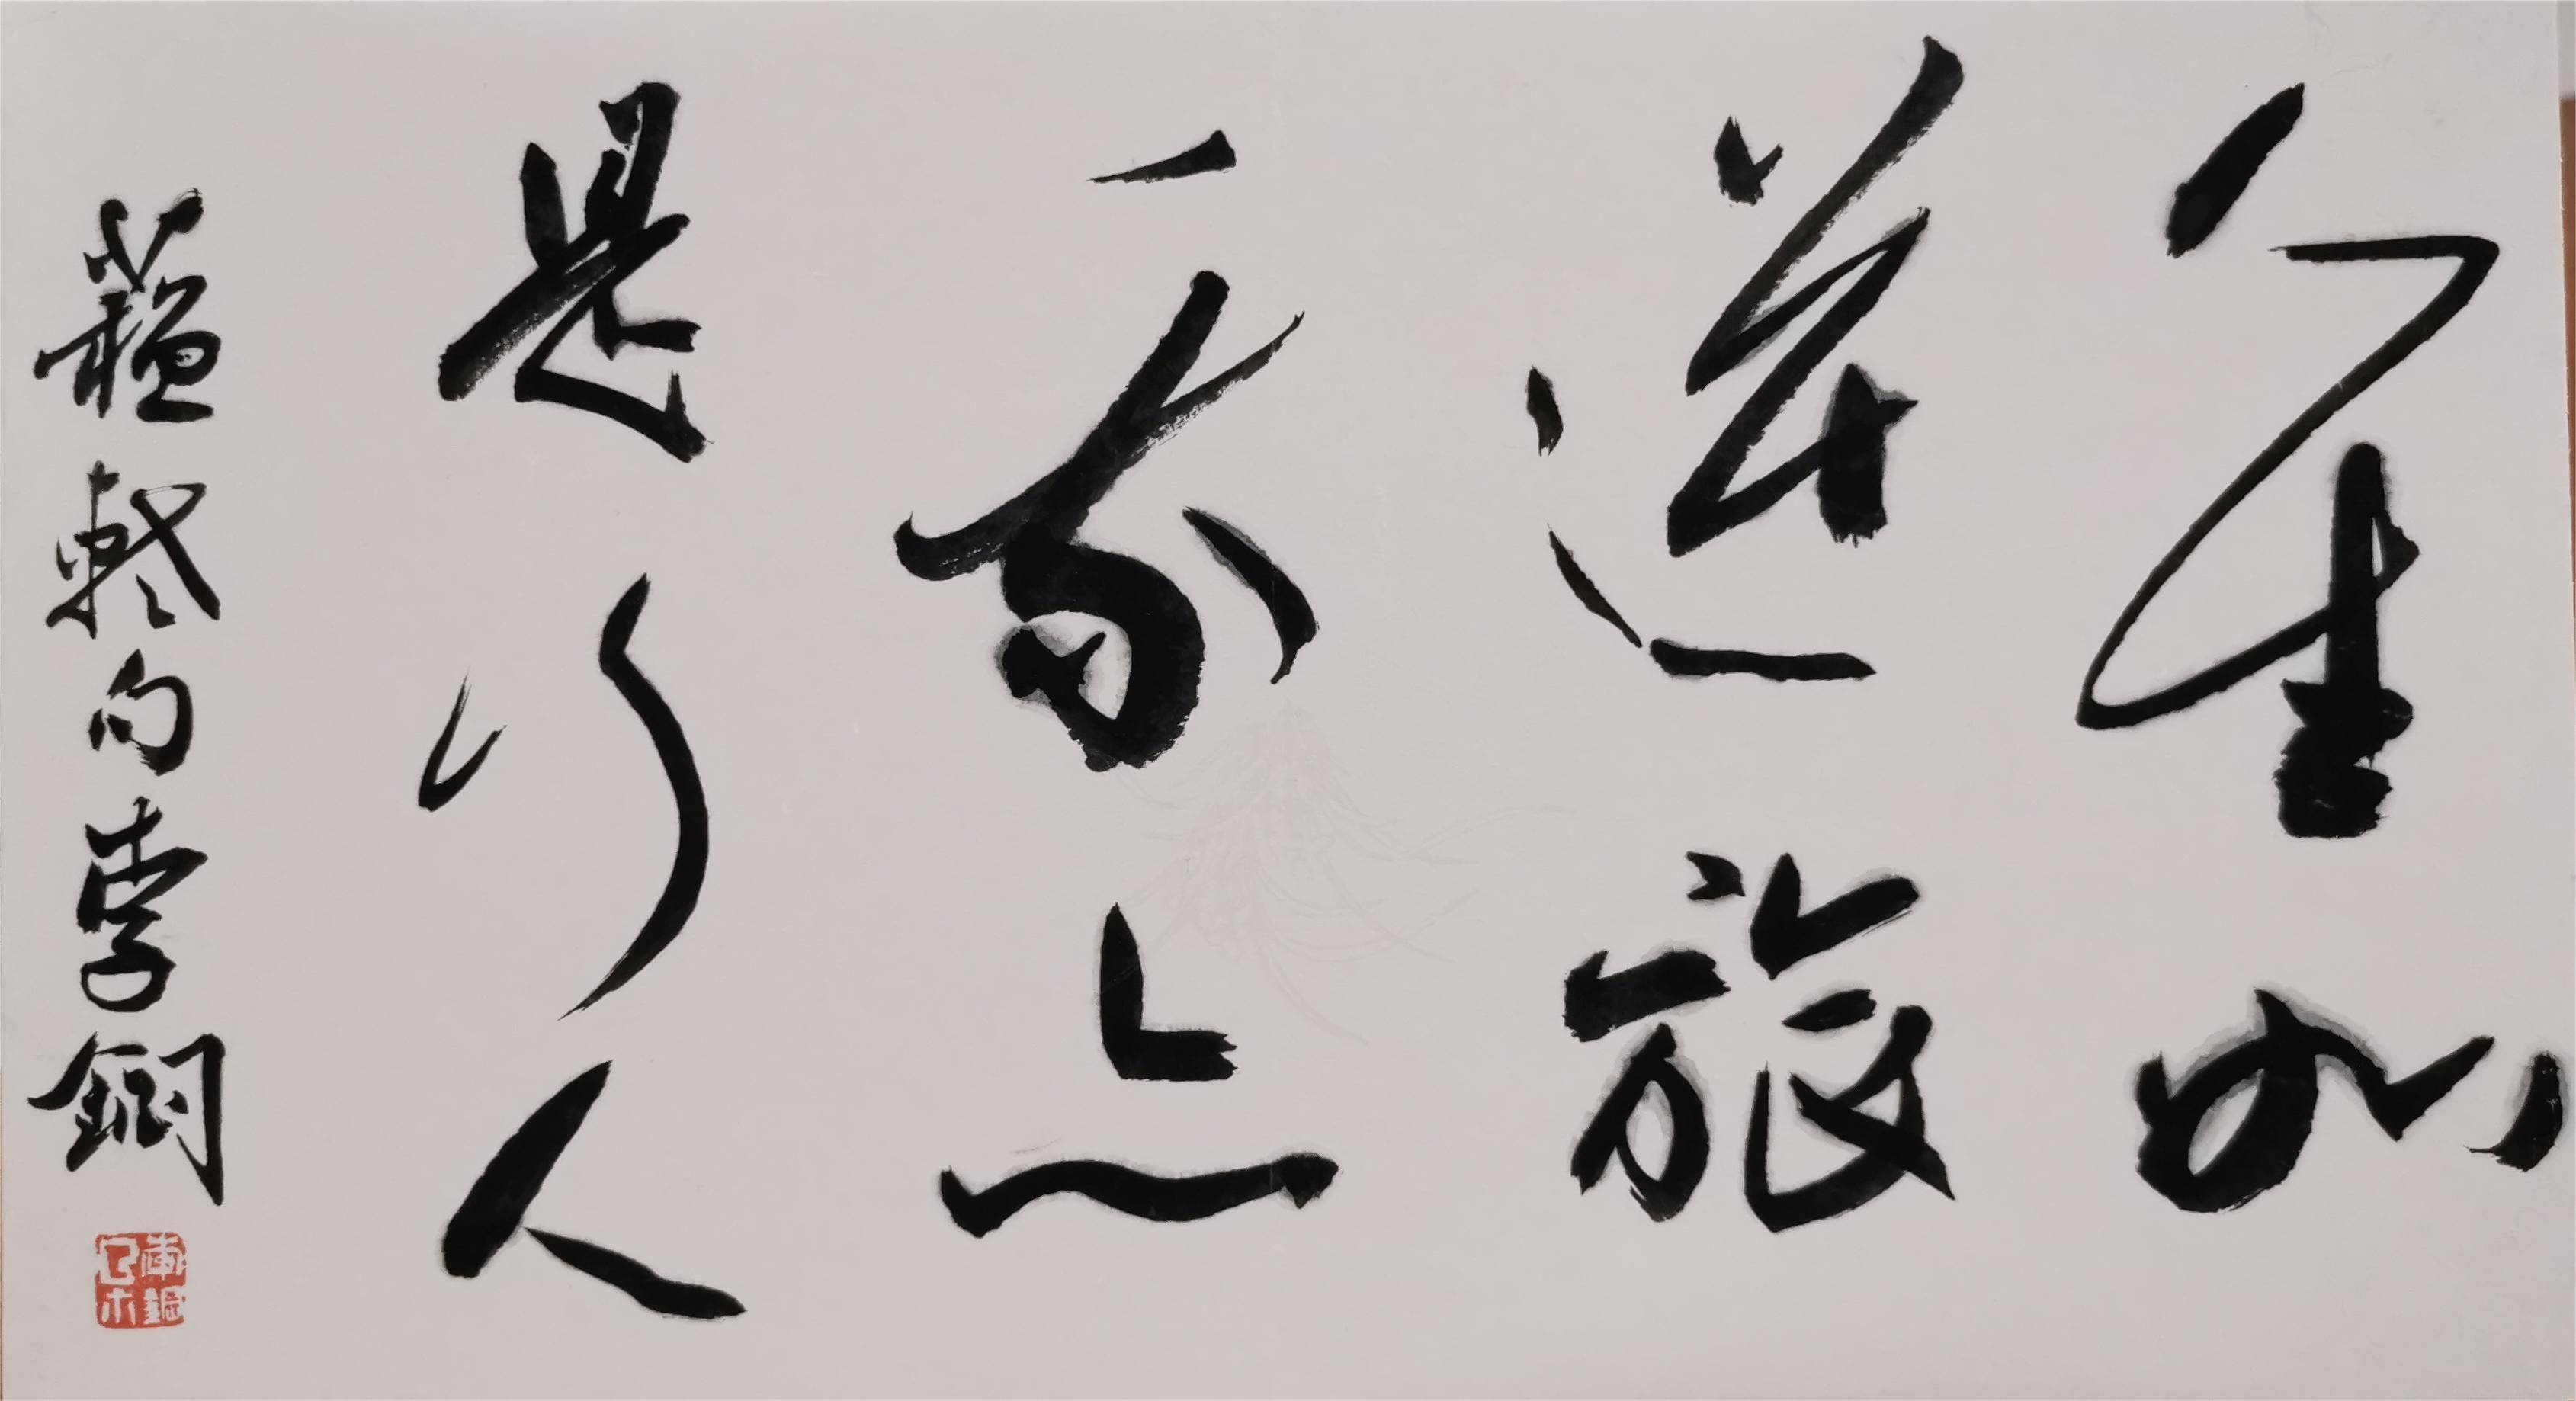 人生如
逆旅
我亦
是行人
蘇軾句李鋼